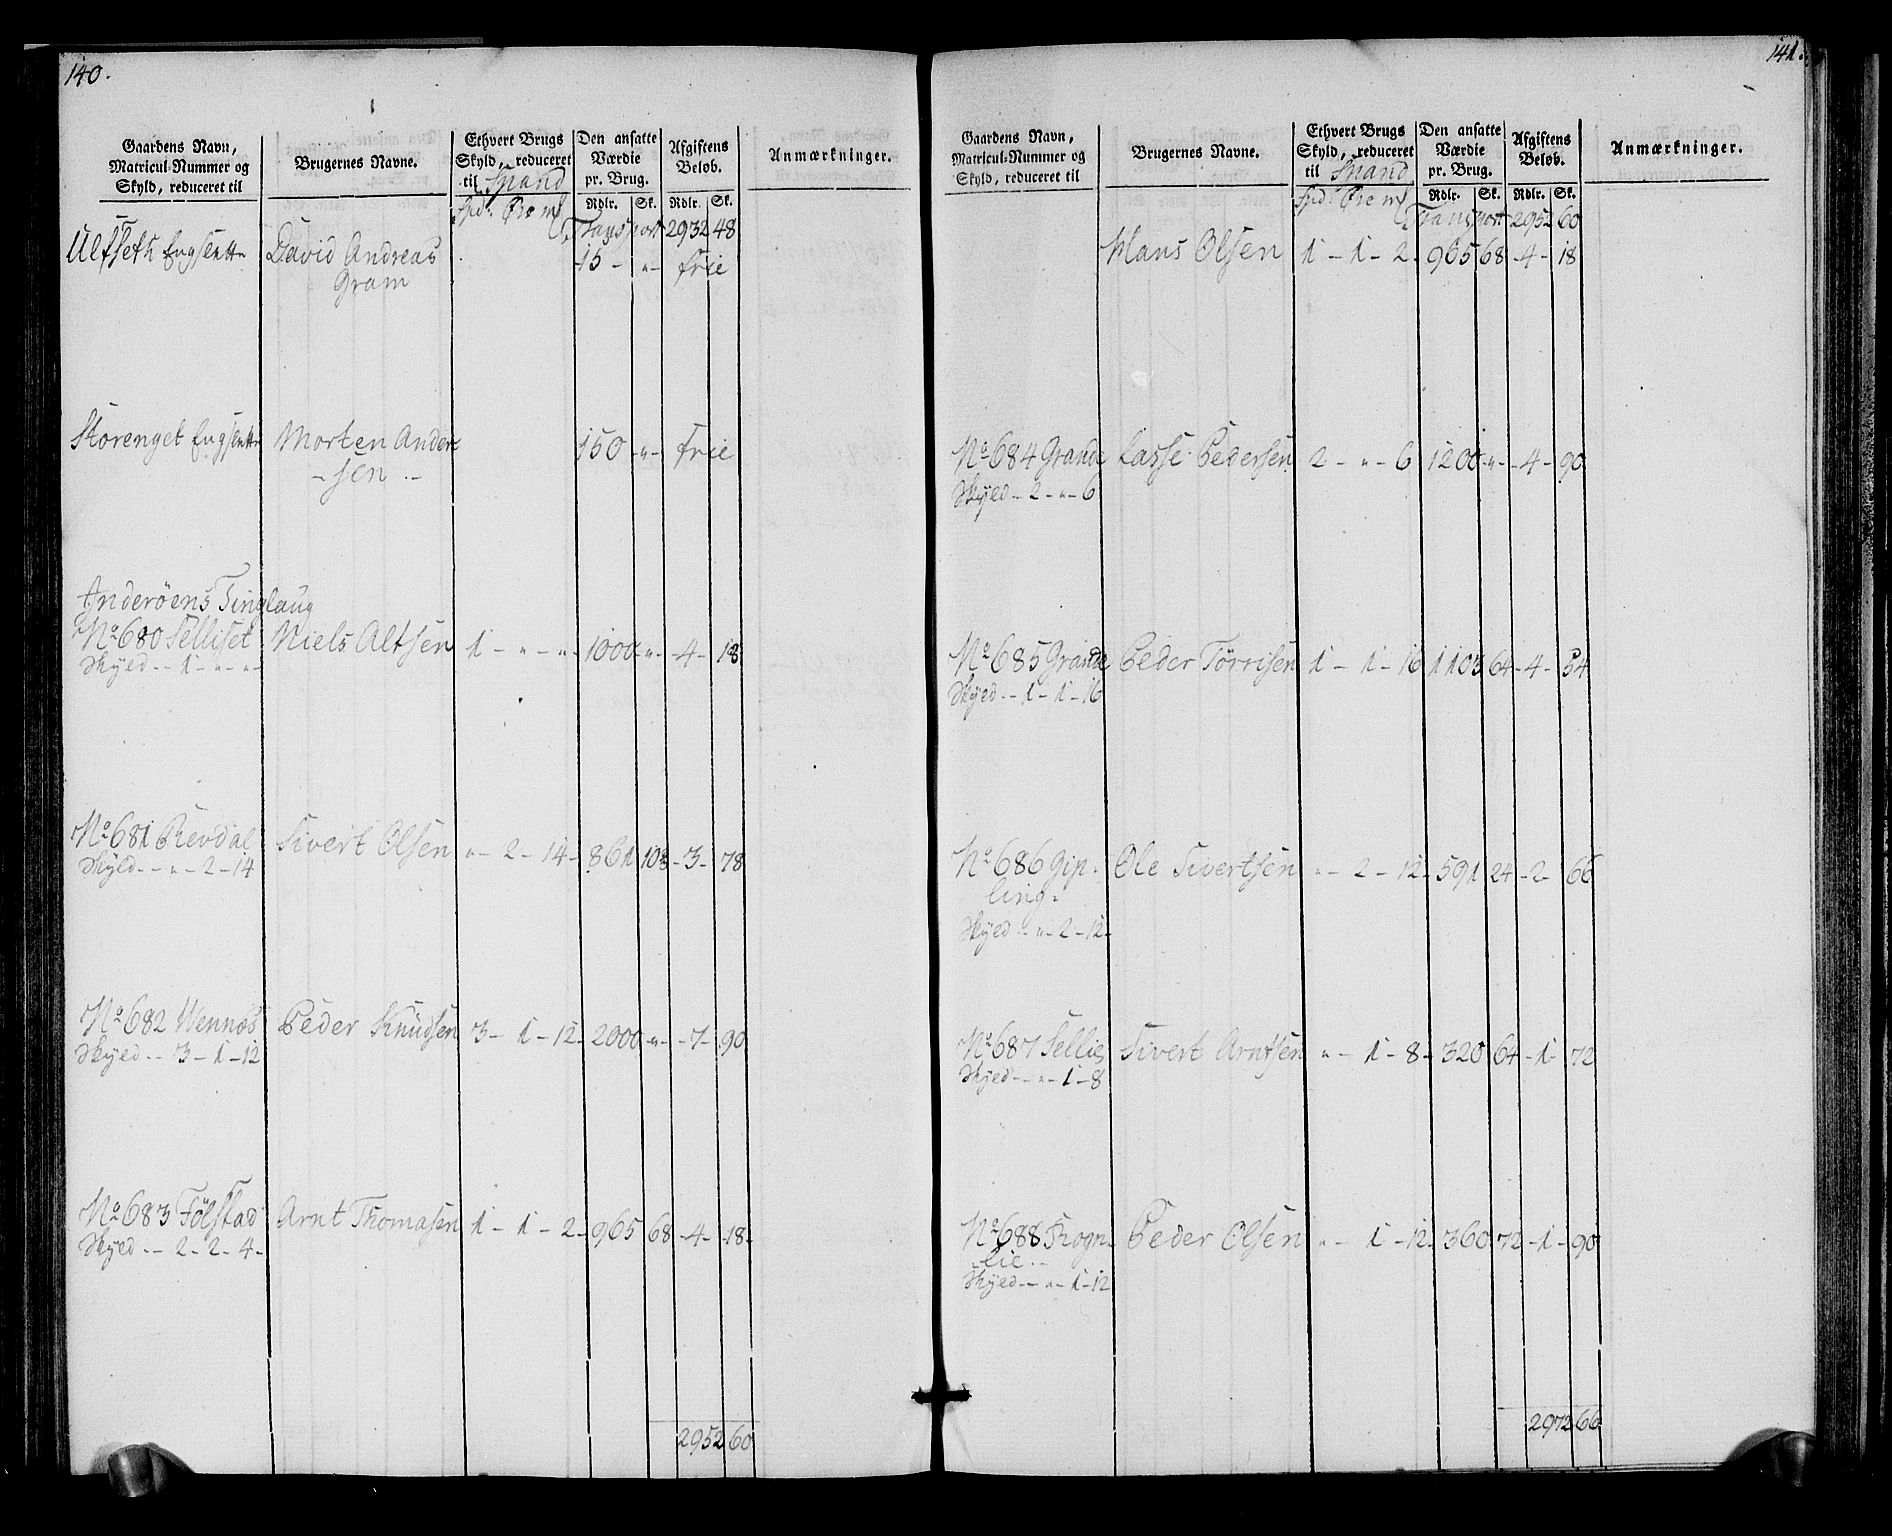 140.
Gaardens Navn, Matricul-Nummer og Skyld, reduceret til
Brugernes Navne.
Ethvert Brugs Skyld, reduceret til Spand
Den ansatte Værdie pr. Brug.
Afgiftens Beløb.
Anmærkninger.
Rdlr. Sk. Rdlr. Sk.
Transport 2932 48
Ulfseth Engslette David Andreas 15 - „ - frie
Gram
Storenget Engslette Morten Ander 150 - „ - frie
- sen . -
Inderöens Tinglaug
No 680 Selliset Niels Altsen 1 - „ - „ - 1000 - „ - 4 - 18
Skyld - - 1 - „ - „
No 681 Revdal Sivert Olsen „ - 2 - 14 - 861 103 - 3 - 78
Skyld - - „ - 2 - 14
No 682 Wennæs Peder Knudsen 3 - 1 - 12 - 2000 „ - 7 - 90
Skyld - - 3 - 1 - 12
No 683 Fölstad Arnt Thomasen 1 - 1 - 2 - 965 68 - 4 - 18 -
Skyld - - 2 - 2 - 4 -
2952 60
141.
Gaardens Navn, Matricul-Nummer og Skyld, reduceret til
Brugernes Navne.
Ethvert Brugs Skyld, reduceret til Spand
Den ansatte Værdie pr. Brug.
Afgiftens Beløb.
Anmærkninger.
Rdlr. Sk. Rdlr. Sk.
Transport 2952 60
Hans Olsen 1 - 1 - 2 - 965 68 - 4 - 18
No 684 Grande Lasse Pedersen 2 - „ - 6 1200 - „ - 4 - 90
Skyld - 2 - „ - 6
No 685 Grande Peder Törrisen 1 - 1 - 16 1103 64 - 4 - 54
Skyld - - 1 - 1 - 16
No 686 Gip- Ole Sivertsen „ - 2 - 12 - 591 24 - 2 - 66
ling -
Skyld - - „ - 2 - 12 -
No 687 Sellie Sivert Arntsen „ - 1 - 8 - 320 64 - 1 - 72
Skyld - - „ - 1 - 8
No 688 Rogn- Peder Olsen „ - 1 - 12 - 360 72 - 1 - 90
lie - -
Skyld - - „ - 1 - 12
2972 66